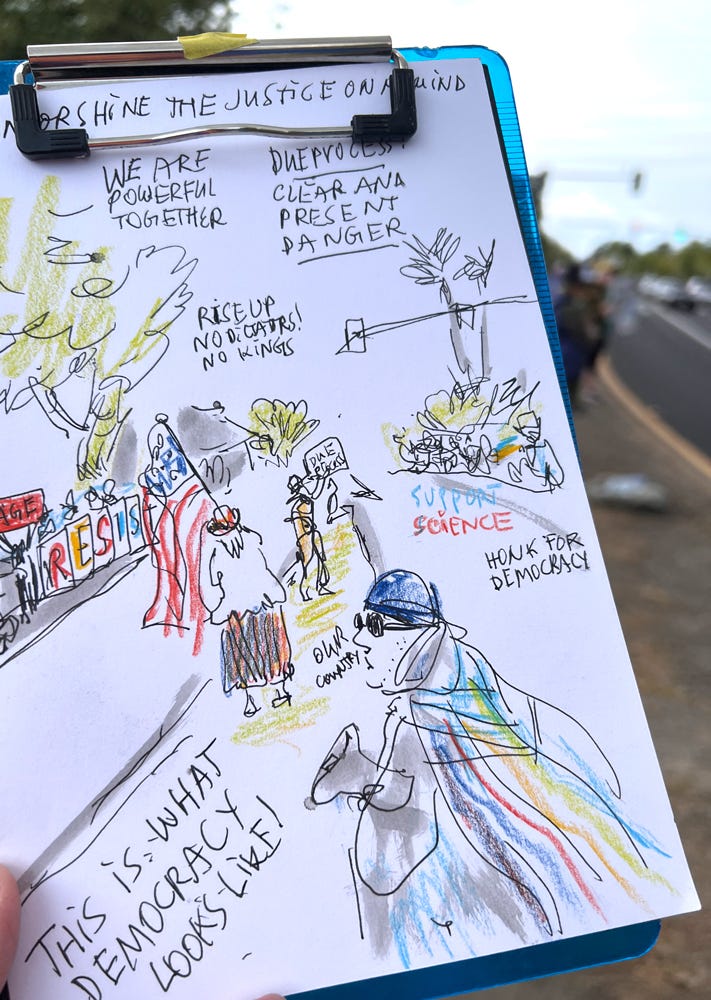 SHINE THE JUSTICE ON MIND
WE ARE
POWERFUL
TOGETHER
DUE PROCESS!
CLEAR AND
PRESENT
DANGER
RISE UP
NO DICTATORS!
NO KINGS
DUE
PROCESS
AGE
RESIS
SUPPORT
SCIENCE
HONK FOR
DEMOCRACY
OUR
COUNTRY
THIS IS WHAT
DEMOCRACY
LOOKS LIKE!